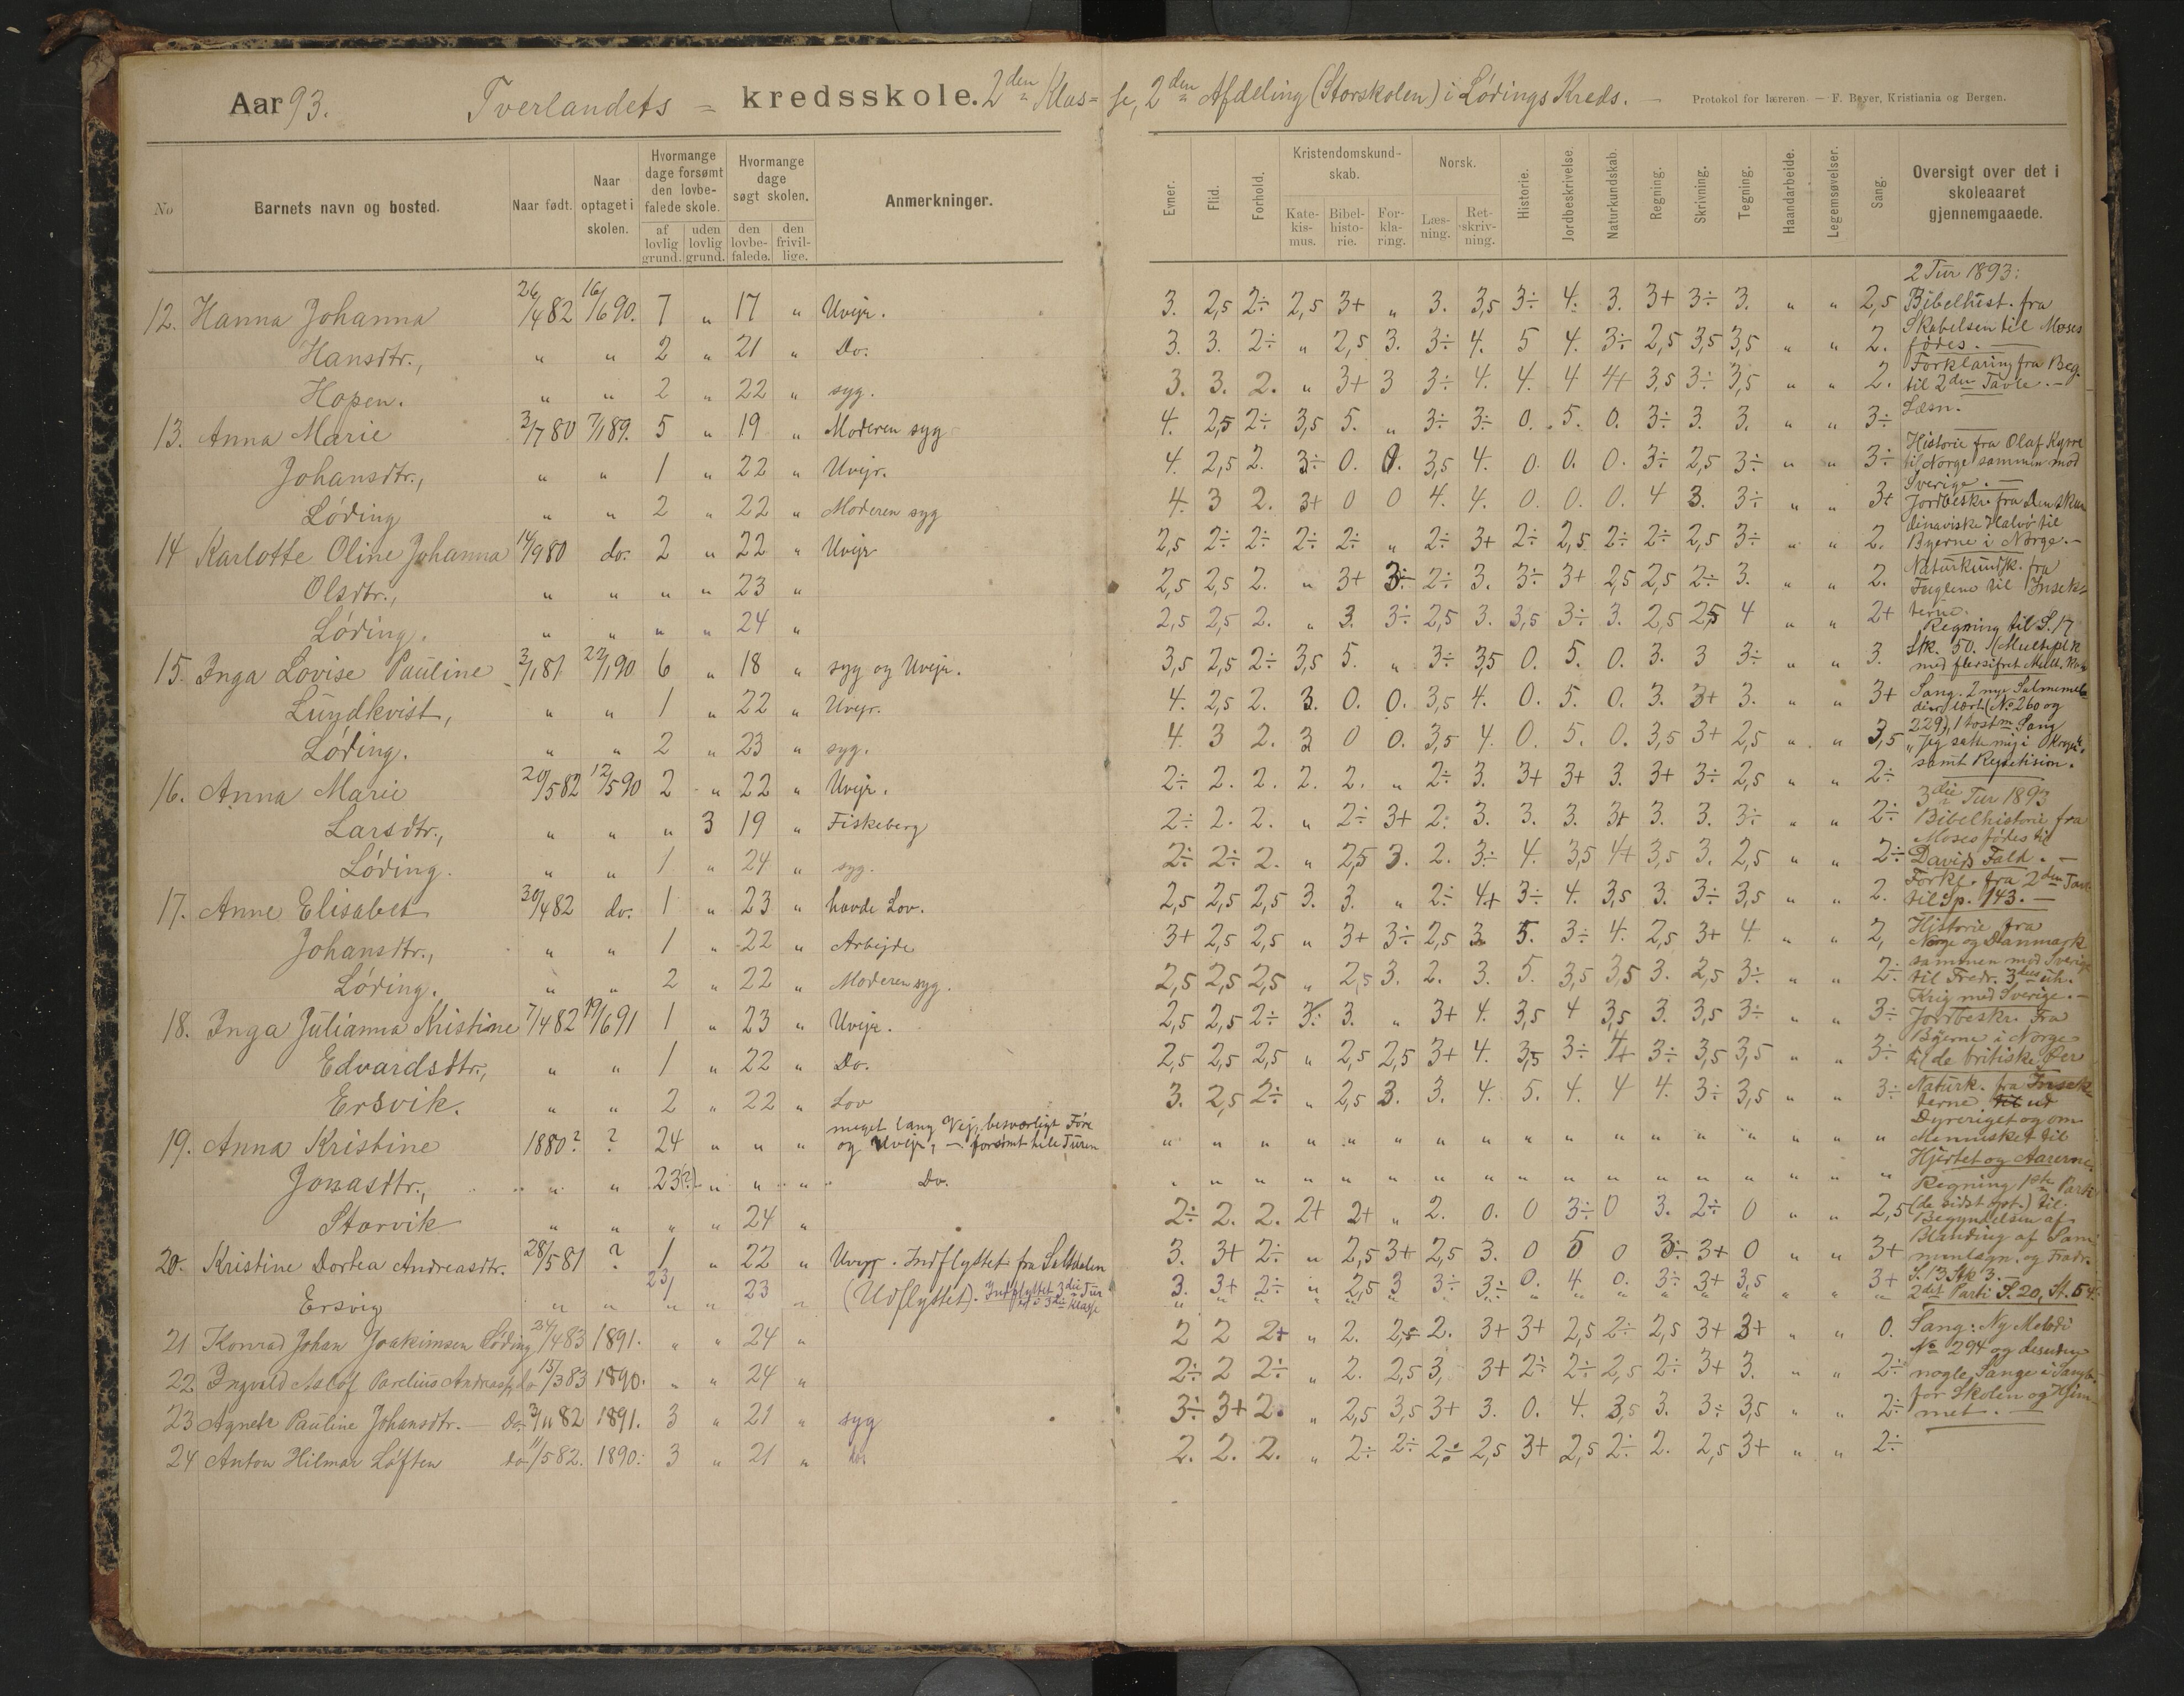 Aar 93. Tverlandets = kredsskole. 2den Klas= se, 2den Afdeling (Storskolen) i Lødings Kreds. — Protokol for læreren. — F. Beyer, Kristiania og Bergen.
No Barnets navn og bosted. Naar født. Naar optaget i skolen. Hvormange dage forsømt den lovbefalede skole. af lovlig grund. uden lovlig grund. Hvormange dage søgt skolen. den lovbefalede. den frivillige. Anmerkninger. Evner. Flid. Forhold. Kristendomskundskab. Katekismus. Bibelhistorie. Forklaring. Norsk. Læsning. Retskrivning. Historie. Jordbeskrivelse. Naturkundskab. Regning. Skrivning. Tegning. Haandarbeide. Legemsøvelser. Sang. Oversigt over det i skoleaaret gjennemgaaede.
12. Hanna Johanna 26/4 82 16/6 90. 7 „ 17 „ Uvejr. 3. 2,5 2÷ 2,5 3+ „ 3. 3,5 3÷ 4. 3. 3+ 3÷ 3. „ „ 2,5
Hansdtr., „ „ 2 „ 21 „ Do. 3. 3. 2÷ „ 2,5 3. 3÷ 4. 5 4. 3÷ 2,5 3,5 3,5 „ „ 2.
Hopen. „ „ 2 „ 22 „ syg. 3. 3. 2. „ 3+ 3 3÷ 4. 4. 4 4+ 3,5 3÷ 3,5 „ „ 2.
13. Anna Marie 3/7 80 7/1 89. 5 „ 19 „ Moderen syg 4. 2,5 2÷ 3,5 5. „ 3÷ 3÷ 0. 5. 0. 3÷ 3. 3. „ „ 3÷
Johansdtr., „ „ 1 „ 22 „ Uvejr. 4. 2,5 2. 3÷ 0. 0. 3,5 4. 0. 0. 0. 3÷ 2,5 3÷ „ „ 3÷
Løding „ „ 2 „ 22 „ Moderen syg 4. 3 2. 3+ 0 0 4. 4. 0. 0. 0. 4 3. 3÷ „ „ 3+
14 Karlotte Oline Johanna 14/9 80 do. 2 „ 22 „ Uvejr 2,5 2÷ 2÷ 2÷ 2÷ „ 2÷ 3+ 2÷ 2,5 2÷ 2÷ 2,5 3÷ „ „ 2.
Olsdtr., „ „ „ „ 23 „ 2,5 2,5 2. „ 3+ 3÷ 2÷ 3. 3÷ 3+ 2,5 2,5 2÷ 3. „ „ 2.
Løding. „ „ „ „ 24 „ 2,5 2,5 2. „ 3. 3÷ 2,5 3. 3,5 3÷ 3. 2,5 2,5 4 „ „ 2+
15. Inga Lovise Pauline 3/1 81 22/1 90 6 „ 18 „ syg og Uvejr. 3,5 2,5 2÷ 3,5 5. „ 3÷ 3,5 0. 5. 0. 3. 3 3÷ „ „ 3.
Lundkvist, „ „ 1 „ 22 „ Uvejr. 4. 2,5 2. 3. 0. 0. 3,5 4. 0. 5. 0. 3. 3+ 3. „ „ 3+
Løding. „ „ 2 „ 23 „ syg. 4. 3 2. 3 0 0. 3,5 4. 0. 5. 0. 3,5 3+ 2,5 „ „ 3,5
16. Anna Marie 20/5 82 12/5 90 2 „ 22 „ Uvejr. 2÷ 2. 2. 2. 2. „ 2÷ 3. 3+ 3+ 3. 3+ 3÷ 2,5 „ „ 2÷
Larsdtr., „ „ „ 3 19 „ Fiskeberg 2÷ 2. 2. „ 2÷ 3+ 2. 3. 3. 3. 3+ 3. 3. 3÷ „ „ 2÷
Løding. „ „ 1 „ 24 „ syg. 2÷ 2÷ 2. „ 2,5 3. 2. 3÷ 4. 3,5 4+ 3,5 3. 2,5 „ „ 2÷
17. Anne Elisabet 30/4 82 do. 1 „ 23 „ havde Lov. 2,5 2,5 2,5 3. 3. „ 2÷ 4+ 3÷ 4. 3,5 3. 3÷ 3,5 „ „ 2.
Johansdtr., „ „ 1 „ 22 „ Arbejde 3+ 2,5 2,5 „ 3+ 3÷ 2,5 3. 5. 3÷ 4. 2,5 3+ 4. „ „ 2,
Løding. „ „ 2 „ 22 „ Moderen syg. 2,5 2,5 2,5 „ 2,5 3. 2. 3. 5. 3,5 3,5 3. 2,5 3÷ „ „ 2÷
18. Inga Julianna Kristine 7/4 82 19/6 91 1 „ 23 „ Uvejr. 2,5 2,5 2÷ 3÷ 3. „ 3+ 4. 3,5 4 3,5 3. 3,5 3÷ „ „ 3÷
Edvardsdtr., „ „ 1 „ 22 „ Do. 2,5 2,5 2,5 „ 2,5 2,5 3+ 4. 3,5 3÷ 4+ 3÷ 3,5 3,5 „ „ 3÷
Ersvik. „ „ 2 „ 22 „ Lov 3. 2,5 2÷ „ 2,5 3. 3. 4. 5. 4. 4 4. 3÷ 3,5 „ „ 3÷
19. Anna Kristine 1880? ? 24 „ „ „ meget lang Vej, besværligt Føre og Uvejr, — forsømt hele Turen „ „ „ „ „ „ „ „ „ „ „ „ „ „ „ „ „
Jonasdtr., „ „ 23(?) „ „ „ Do. „ „ „ „ „ „ „ „ „ „ „ „ „ „ „ „ „
Storvik „ „ „ „ 24 „ 2÷ 2. 2. 2+ 2+ „ 2. 0. 0 3÷ 0 3. 2÷ 0 „ „ 2,5
20. Kristine Dortea Andreasdtr. 28/5 81 ? 1 „ 22 „ Uvejr. Indflyttet fra Saltdalen 3. 3+ 2÷ „ 2,5 3+ 2,5 3. 0 5 0 3÷ 3+ 0 „ „ 3+
Ersvig „ „ 23/ „ „ 23 „ (Udflyttet). Indflyttet 3die Tur i 3die Klasse 3. 3+ 2÷ „ 2,5 3 3÷ 3÷ 0. 4. 0. 3÷ 3+ 3,5 „ „ 3+
21 Konrad Johan Joakimsen Løding 24/4 83 1891. „ „ 24 „ 2 2 2+ „ 2. 2,5 2. 3+ 3+ 2,5 2÷ 2,5 3+ 3+ „ „ 0.
22 Ingvald Parelius do 15/3 83 1890. „ „ 24 „ 2÷ 2 2÷ „ 2. 2,5 3, 3+ 2÷ 2÷ 2,5 2÷ 3+ 3. „ „ 2÷
23 Agnete Pauline Johansdtr. — Do. 3/11 82 1891. 3 „ 21 „ syg 3÷ 3+ 2. „ 2,5 3,5 3+ 3. 0. 4. 3,5 3. 3÷ 3,5 „ „ 2÷
24 Anton Hilmar Løften do 11/5 82. 1890. 3 „ 21 „ do. 2. 2. 2. „ 2÷ 2÷ 2÷ 2,5 3+ 2,5 2÷ 2. 2,5 3+ „ „ 2÷
2 Tur 1893:
Bibelhist. fra
Skabelsen til Moses
fødes. —
Forklaring fra Beg.
til 2den Tavle. —
Læsn.
Historie fra Olaf Kyrre
til Norge sammen med
Sverige. —
Jordbeskr. fra Den skan
dinaviske Halvø til
Byerne i Norge. —
Naturkundsk. fra
Fuglene til Insek-
terne.
Regning til S. 17
Stk. 50. (Multiplik
med flersifret
Sang. 2 nye Salmemelo
dier lært (No 260 og
229), 1 tostm. Sang
„Jeg satte mig i
samt Repetision.
3die Tur 1893
Bibelhistorie fra
Moses fødes til
Davids Fald. —
Forkl. fra 2den Tavle
til Sp. 143. —
Historie fra
Norge og Danmark
sammen med Sverige
til Fredr. 3des
Krig med Sverige. —
Jordbeskr. Fra
Byerne i Norge
til de britiske Øer
Naturk. fra Insek
terne til ud
Dyreriget og om
Mennesket til
Hjertet og Aarerne.
Regning 1ste Parti
(de sidst opt.) til
Begyndelsen af
Blanding af Sam
menlægn. og Fradr.
S. 13 Stk 3. —
2det Parti S. 20, St. 54.
Sang: Ny Melodi
No 294 og desuden
nogle Sange i Sangb.
for Skolen og Hjem
met. —